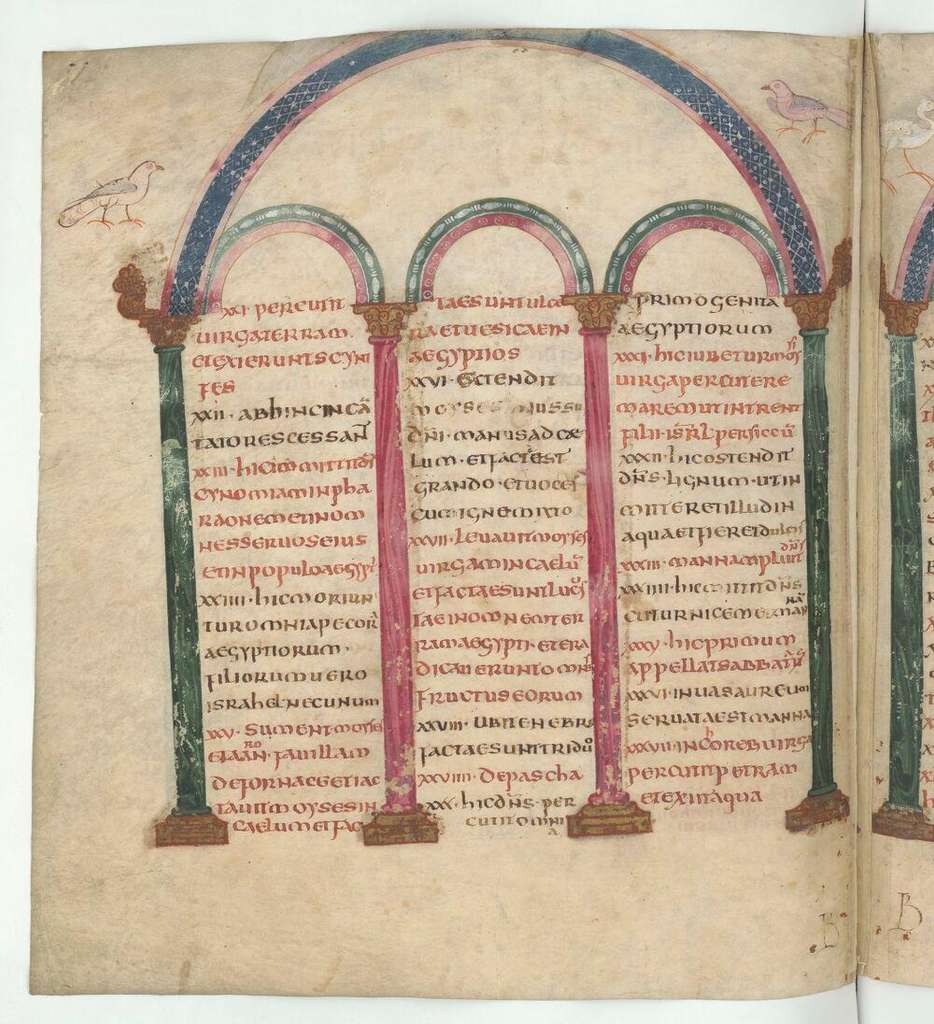 XXI· PERCUTIT
UIRGA TERRAM·
ET EXIERUNT SCYNI
FES
XXII· AB HINC INCĀ
TATORES CESSAN̄
XXIII· HIC
CYNOMIAM IN PHA
RAONEM ET IN OM
NES SERUOS EIUS
ET IN POPULO AEGYPTI
XXIIII· HIC MORIUN
TUR OMNIA PECORĀ
AEGYPTIORUM·
FILIORUM UERO
ISRAHEL NEC UNUM
XXV· SUMENT MOYSES
ET AARON· FAUILLAM
DE FORNACE ET IAC
TAUIT MOYSES IN
CAELUM ET FAC
TAE SUNT ULCE
RA ET UESICAE IN
AEGYPTIOS
XXVI· EXTENDIT
MOYSES IUSSU
DN̄I· MANUS AD CAE
LUM· ET FACT EST
GRANDO· ET UOCES
CUM IGNE MIXTO
XXVII· LEUAUIT MOYSES
UIRGAM IN CAELŪ
ET FACTAE SUNT LUCUS
TAE IN OMNEM TER
RAM AEGYPTI· ET ERA
DICAUERUNT OMNES
FRUCTUS EORUM
XXVIII· UBI TENEBRAE
FACTAE SUNT TRIDUŌ
XXVIIII· DE PASCHA
XXX· HIC DN̄S· PER
CUTIT OMNIA
PRIMOGENITA
AEGYPTIORUM
XXXI· HIC IUBETUR MOYSI
UIRGA PERCUTERE
MARE M UT INTRENT
FILII· ISRL̄ PER SICCŪ
XXXII· HIC OSTENDIT
DN̄S· LIGNUM· UT IN
MITTERET ILLUD IN
AQUA ET FIERET DULCIS
XXXIII· MANNAM PLUIT DN̄S
XXXIIII· HIC MITTIT DN̄S
COTURNICEM MAN NĀ
XXXV· HIC PRIMUM
APPELLAT SABBATŪ
XXXVI· IN UAS AUREUM
SERUATA EST MANNA
XXXVII· IN CHOREB UIRGA
PERCUTIT PETRAM
ET EXIIT AQUA
B
B